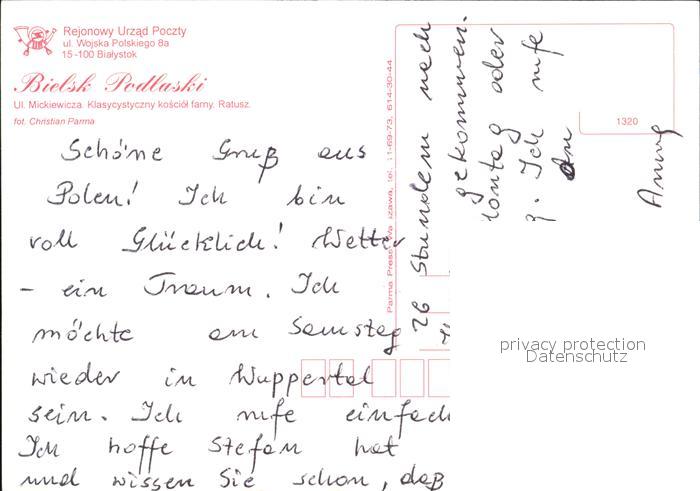 Rejonowy Urząd Poczty
ul. Wojska Polskiego 8a
15-100 Białystok
Bielsk Podlaski
Ul. Mickiewicza. Klasycystyczny kościół farny. Ratusz.
fot. Christian Parma
Schöne Gruß aus
Polen! Ich bin
voll Glücklich! Wetter
- ein Traum. Ich
möchte am Samstag
wieder in Wuppertal
sein. Ich rufe einfach
Ich hoffe Stefan hat
und wissen Sie schon, daß
26 Stunden nach
gekommen.
ontag oder
g. Ich rufe
an
Anna
Parma Press, 11-69-73, 614-30-44
1320
privacy protection
Datenschutz